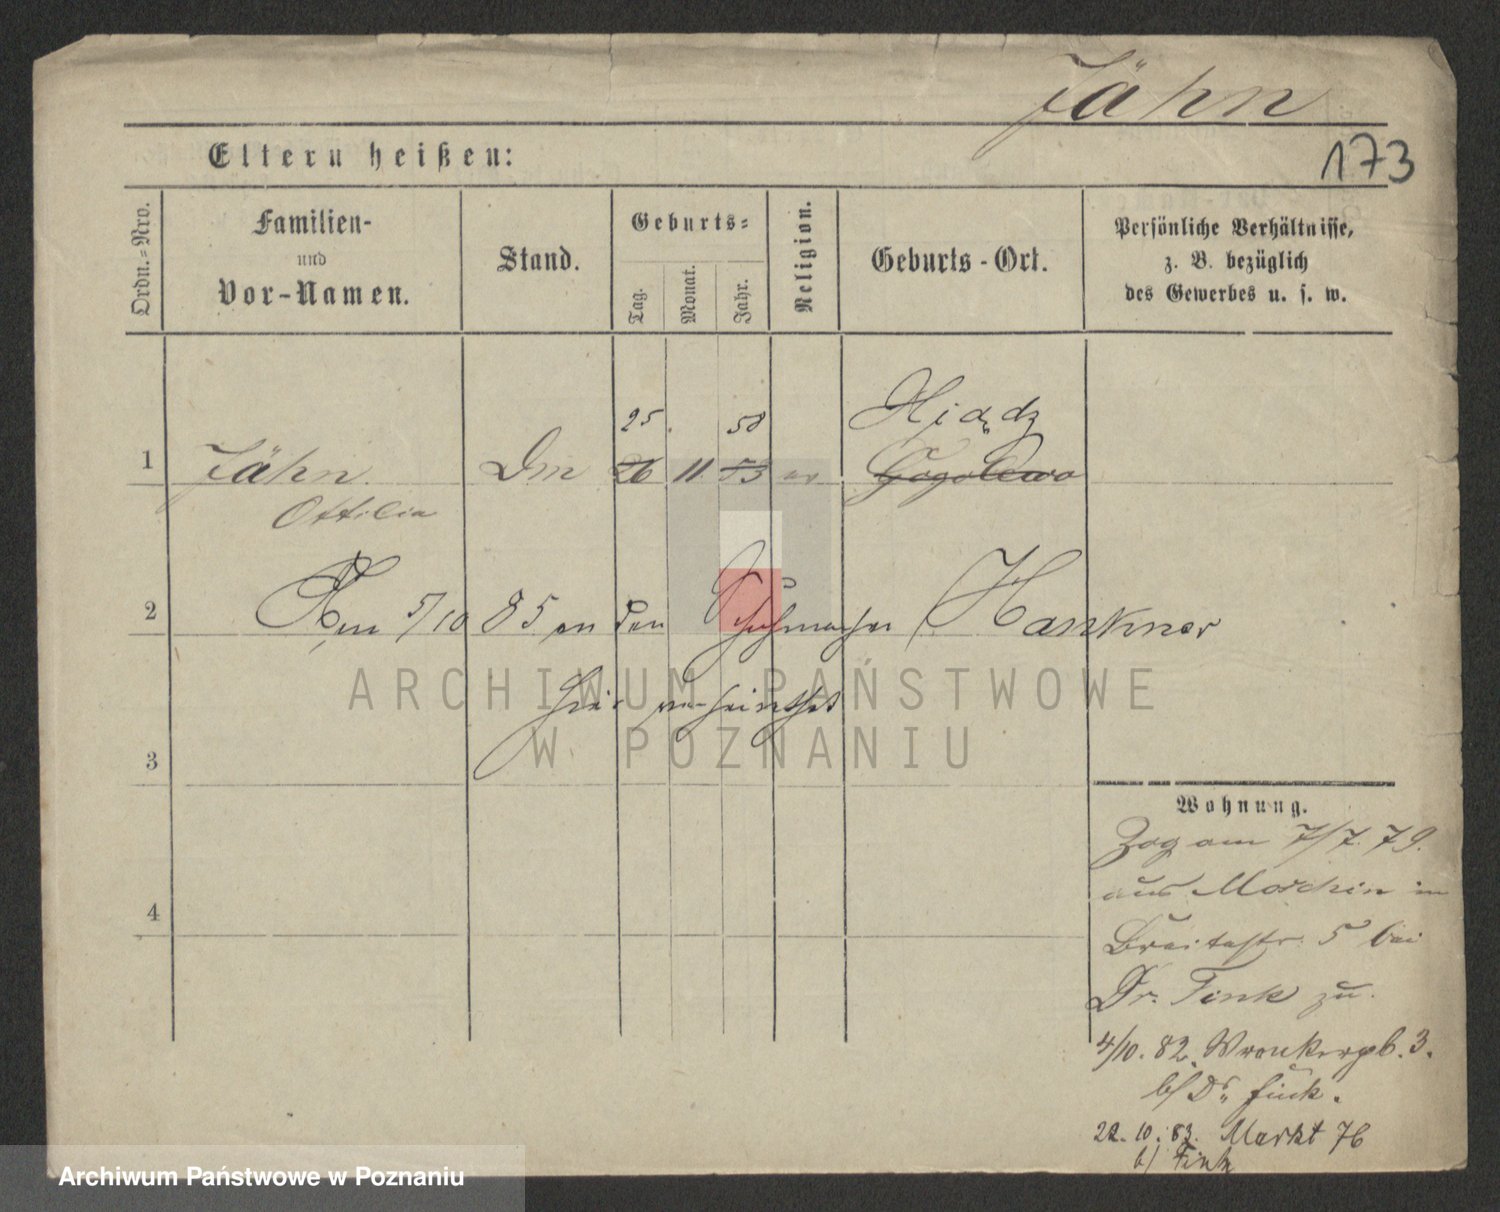 Jähn
173
Eltern heißen:
Ordn.-Nro.
Familien-
und
Vor-Namen.
Stand.
Geburts-
Tag.
Monat.
Jahr.
Religion.
Geburts-Ort.
Persönliche Verhältnisse,
z. B. bezüglich
des Gewerbes u. s. w.
25. 58 Xiądz
1 Jähn Dm 26 11. 53 ev Gogolewo
Ottilia
2 Am 5/10 85 an den Schuhmacher Hankner
hier verheirathet
3
4
Wohnung.
Zog am 7/7. 79.
aus Morchin in
Breitestr. 5 bei
Dr. Fink zu.
4/10. 82. Wronkerpl. 3.
b/ Dr. Fink.
22. 10. 83. Markt 76
b/ Fink
ARCHIWUM PAŃSTWOWE
W POZNANIU
Archiwum Państwowe w Poznaniu